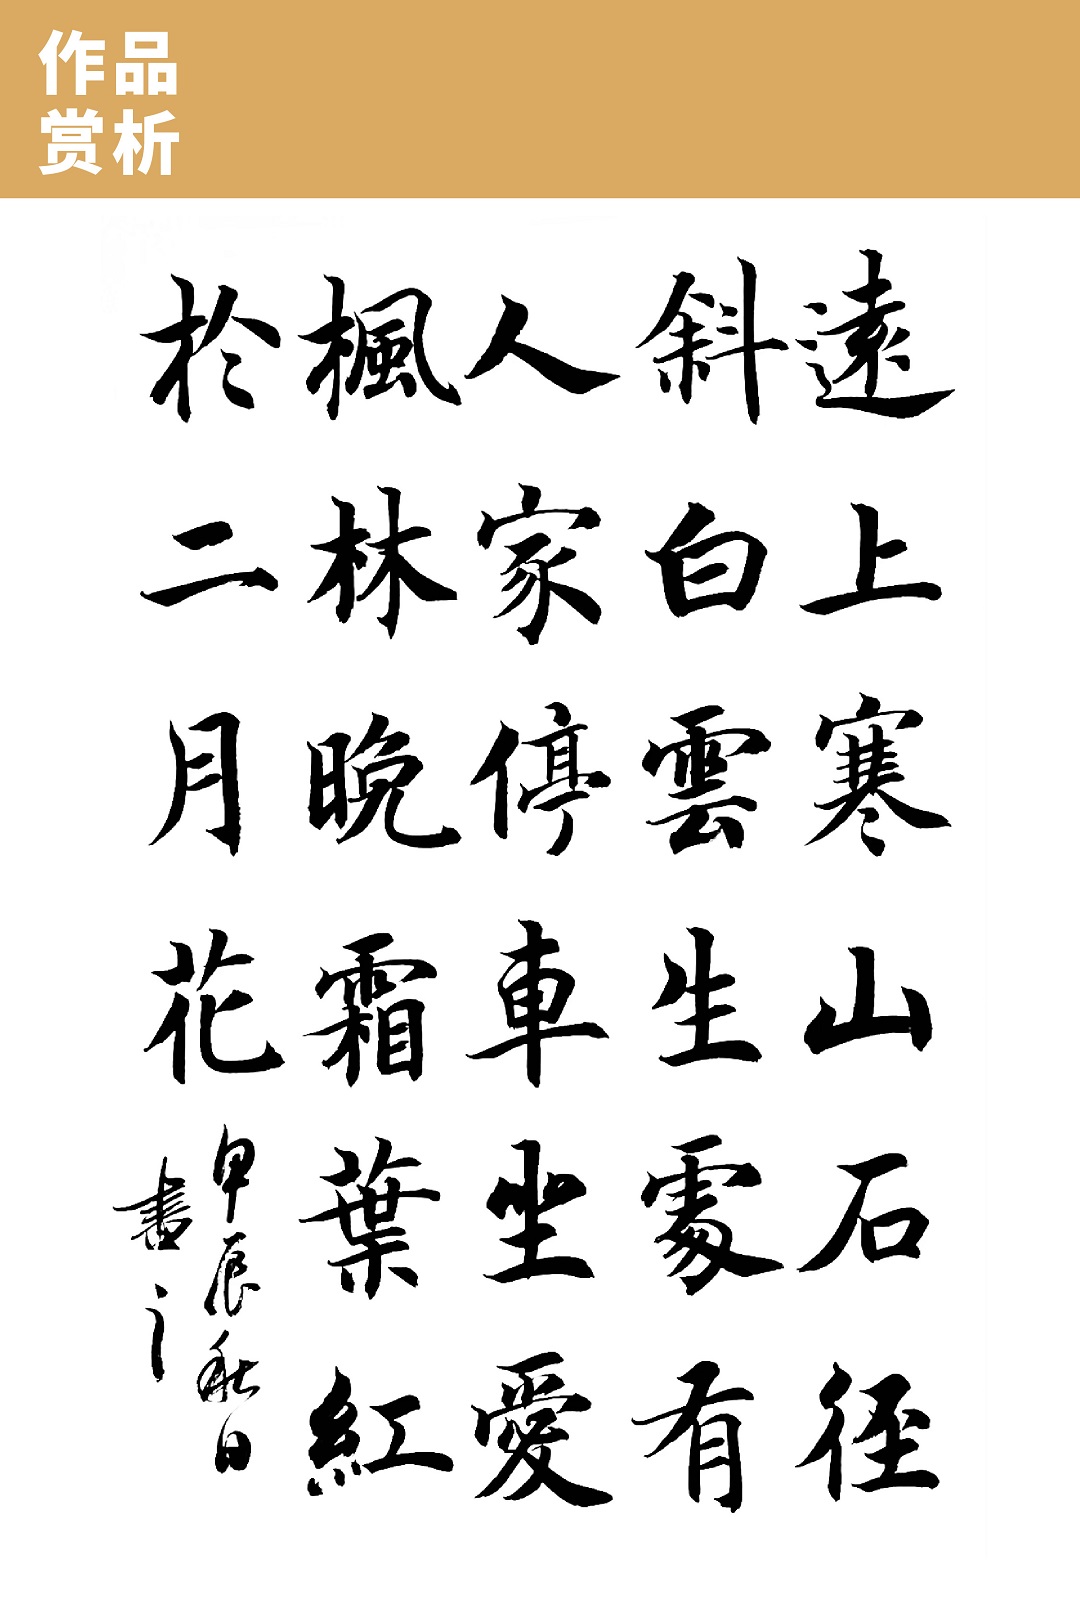 作品
赏析
遠上寒山石径
斜白雲生處有
人家停車坐愛
楓林晚霜葉紅
於二月花
甲辰秋日
書之